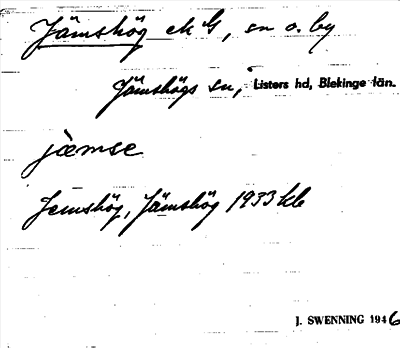 Jämshög ek G, sn o. by
Jämshögs sn, Listers hd, Blekinge län.
jæmse
Jemshög, Jämshög 1933 kb
J. SWENNING 1946